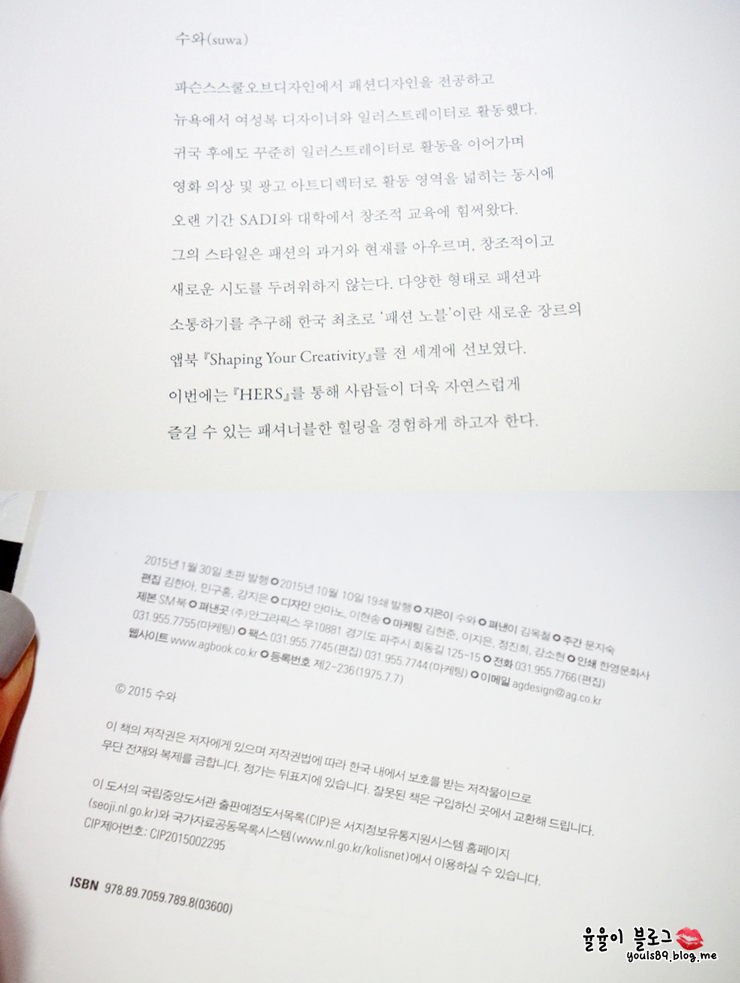 수와(suwa)
파슨스스쿨오브디자인에서 패션디자인을 전공하고
뉴욕에서 여성복 디자이너와 일러스트레이터로 활동했다.
귀국 후에도 꾸준히 일러스트레이터로 활동을 이어가며
영화 의상 및 광고 아트디렉터로 활동 영역을 넓히는 동시에
오랜 기간 SADI와 대학에서 창조적 교육에 힘써왔다.
그의 스타일은 패션의 과거와 현재를 아우르며, 창조적이고
새로운 시도를 두려워하지 않는다. 다양한 형태로 패션과
소통하기를 추구해 한국 최초로 ‘패션 노블’이란 새로운 장르의
앱북 『Shaping Your Creativity』를 전 세계에 선보였다.
이번에는 『HERS』를 통해 사람들이 더욱 자연스럽게
즐길 수 있는 패셔너블한 힐링을 경험하게 하고자 한다.
2015년 1월 30일 초판 발행 ✪ 2015년 10월 10일 19쇄 발행 ✪ 지은이 수와 ✪ 펴낸이 김옥철 ✪ 주간 문지숙
편집 김한아, 민구홍, 강지은 ✪ 디자인 안마노, 이현송 ✪ 마케팅 김헌준, 이지은, 정진희, 강소현 ✪ 인쇄 한영문화사
제본 SM북 ✪ 펴낸곳 (주)안그라픽스 우10881 경기도 파주시 회동길 125-15 ✪ 전화 031.955.7766(편집)
031.955.7755(마케팅) ✪ 팩스 031.955.7745(편집) 031.955.7744(마케팅) ✪ 이메일 agdesign@ag.co.kr
웹사이트 www.agbook.co.kr ✪ 등록번호 제2-236(1975.7.7)
© 2015 수와
이 책의 저작권은 저자에게 있으며 저작권법에 따라 한국 내에서 보호를 받는 저작물이므로
무단 전재와 복제를 금합니다. 정가는 뒤표지에 있습니다. 잘못된 책은 구입하신 곳에서 교환해 드립니다.
이 도서의 국립중앙도서관 출판예정도서목록(CIP)은 서지정보유통지원시스템 홈페이지
(seoji.nl.go.kr)와 국가자료공동목록시스템(www.nl.go.kr/kolisnet)에서 이용하실 수 있습니다.
CIP제어번호: CIP2015002295
ISBN 978.89.7059.789.8(03600)
율율이 블로그
youls89.blog.me